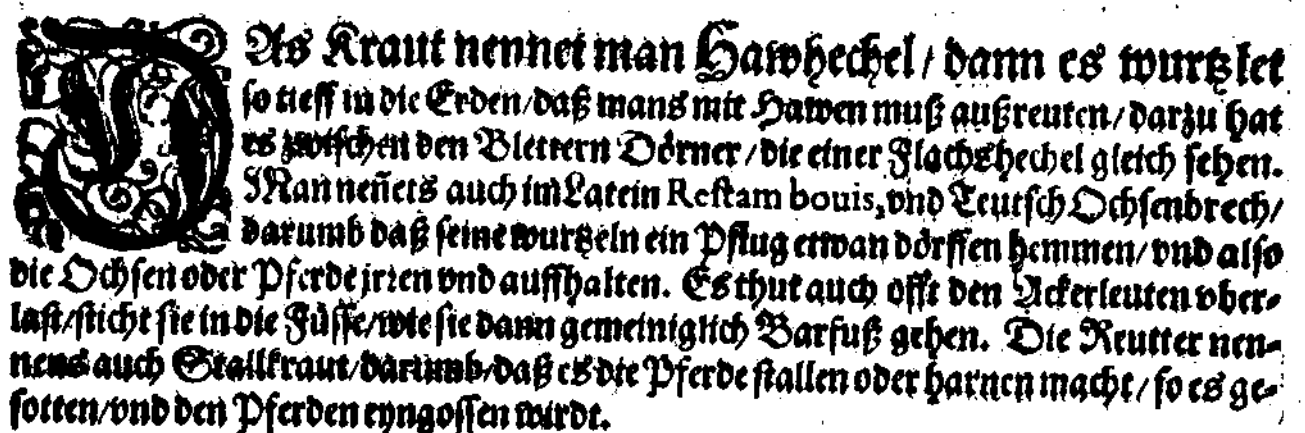 DAs Kraut nennet man Hawhechel / dann es wurtzlet
so tieff in die Erden / daß mans mit Hawen muß außreuten / darzu hat
es zwischen den Blettern Dörner / die einer Flachshechel gleich sehen.
Man neñets auch im Latein Restam bouis, vnd Teutsch Ochsenbrech /
darumb daß seine wurtzeln ein Pflug etwan dörffen hemmen / vnd also
die Ochsen oder Pferde jrren vnd auffhalten. Es thut auch offt den Ackerleuten vber-
last / sticht sie in die Füsse / wie sie dann gemeiniglich Barfuß gehen. Die Reutter nen-
nens auch Stallkraut / darumb / daß es die Pferde stallen oder harnen macht / so es ge-
sotten / vnd den Pferden eyngossen wirdt.